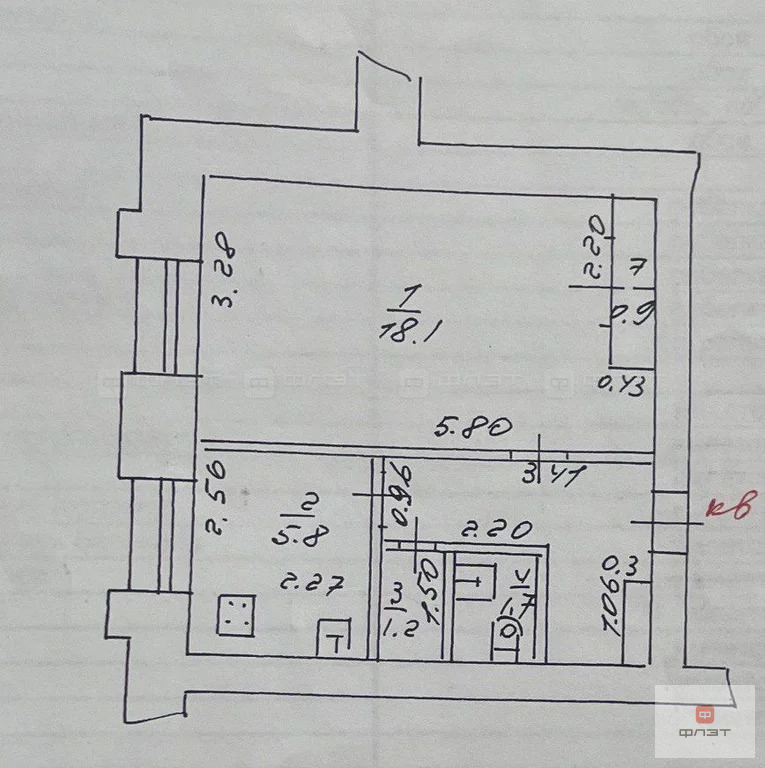 2.20
7
0.9
3.28
1
18.1
0.43
5.80
3.41
2.56
0.96
кв
2
5.8
2.20
2.27
3
1.2
1.50
1.7
0.3
1.06
Т
ФЛЭТ